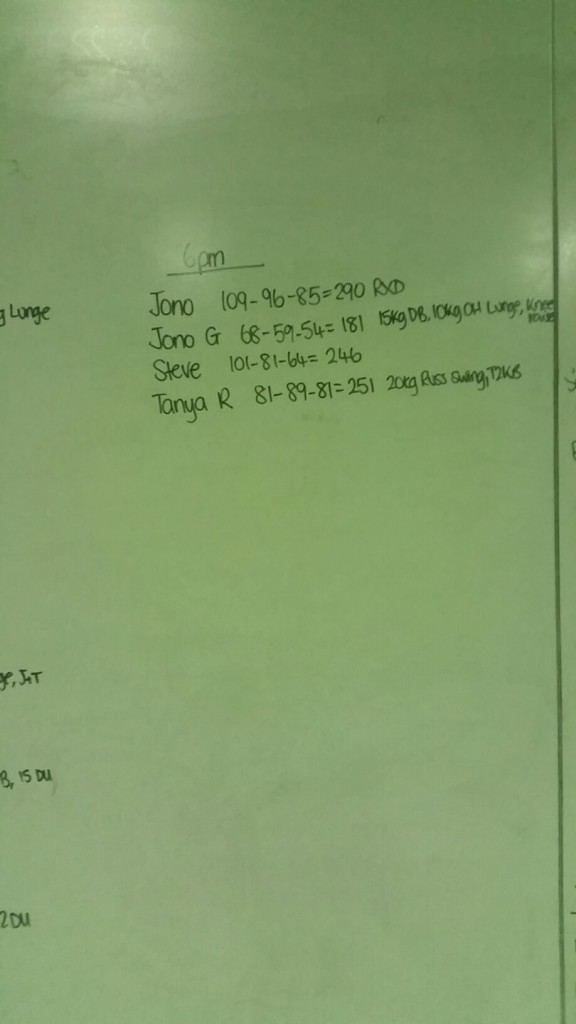 6pm
g Lunge
Jono 109-96-85=290 RXD
Jono G 68-59-54=181 15kg DB, 10kg OH Lunge, Knee raise
Steve 101-81-64=246
Tanya R 81-89-81=251 20kg Russ Swing, T2KB
ge, J+T
B, 15 DU
2 DU